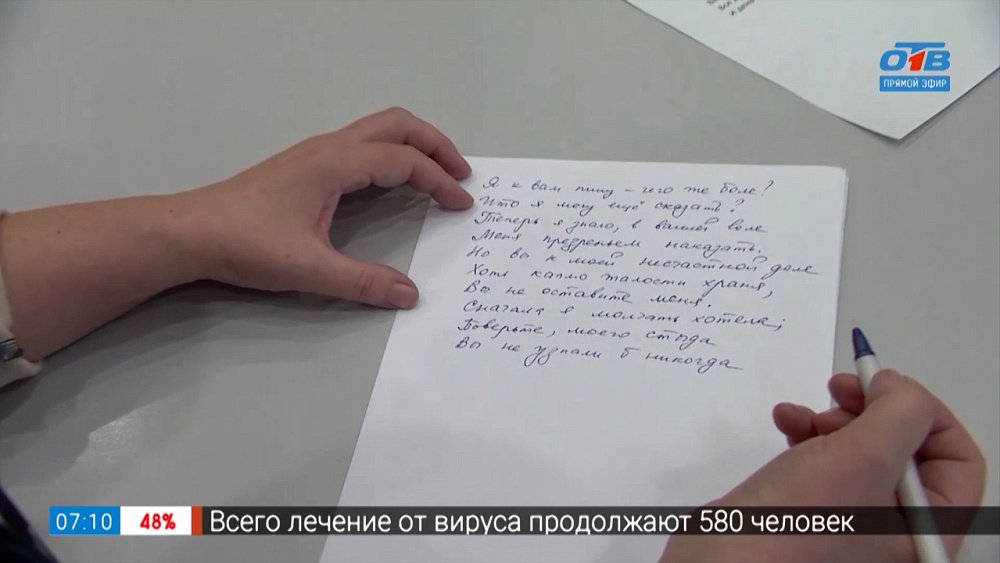 ОТВ
ПРЯМОЙ ЭФИР
Я к вам пишу – чего же боле?
Что я могу ещё сказать?
Теперь я знаю, в вашей воле
Меня презреньем наказать.
Но вы к моей несчастной доле
Хоть каплю жалости храня,
Вы не оставите меня.
Сначала я молчать хотела;
Поверьте, моего стыда
Вы не узнали б никогда
07:10 48% Всего лечение от вируса продолжают 580 человек